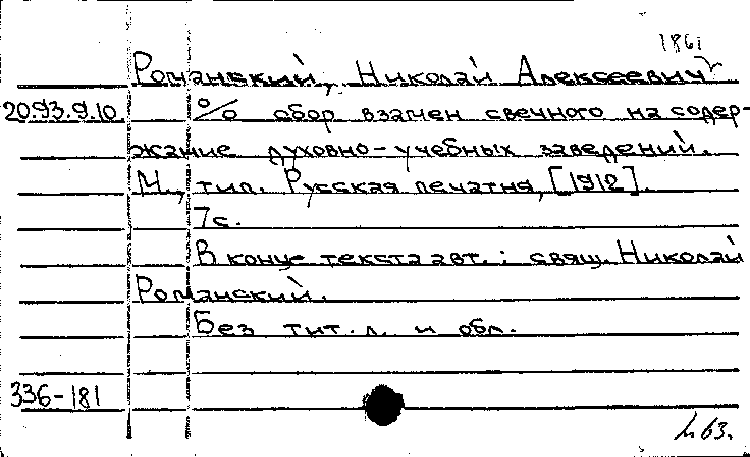 1861
Романский, Николай Алексеевич
20.93.9.10 % сбор взамен свечного на содер-
жание духовно-учебных заведений.
М., тип. Русская печатня, [1912].
7с.
В конце текста авт.: свящ. Николай
Романский.
Без тит. л. и обл.
336-181
63.